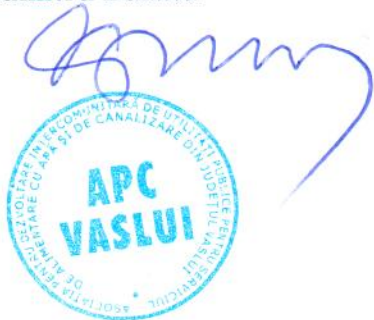 ASOCIAȚIA PENTRU DEZVOLTARE INTERCOMUNITARĂ DE UTILITĂȚI PUBLICE PENTRU SERVICIUL
DE ALIMENTARE CU APĂ ȘI DE CANALIZARE DIN JUDEȚUL VASLUI
APC
VASLUI